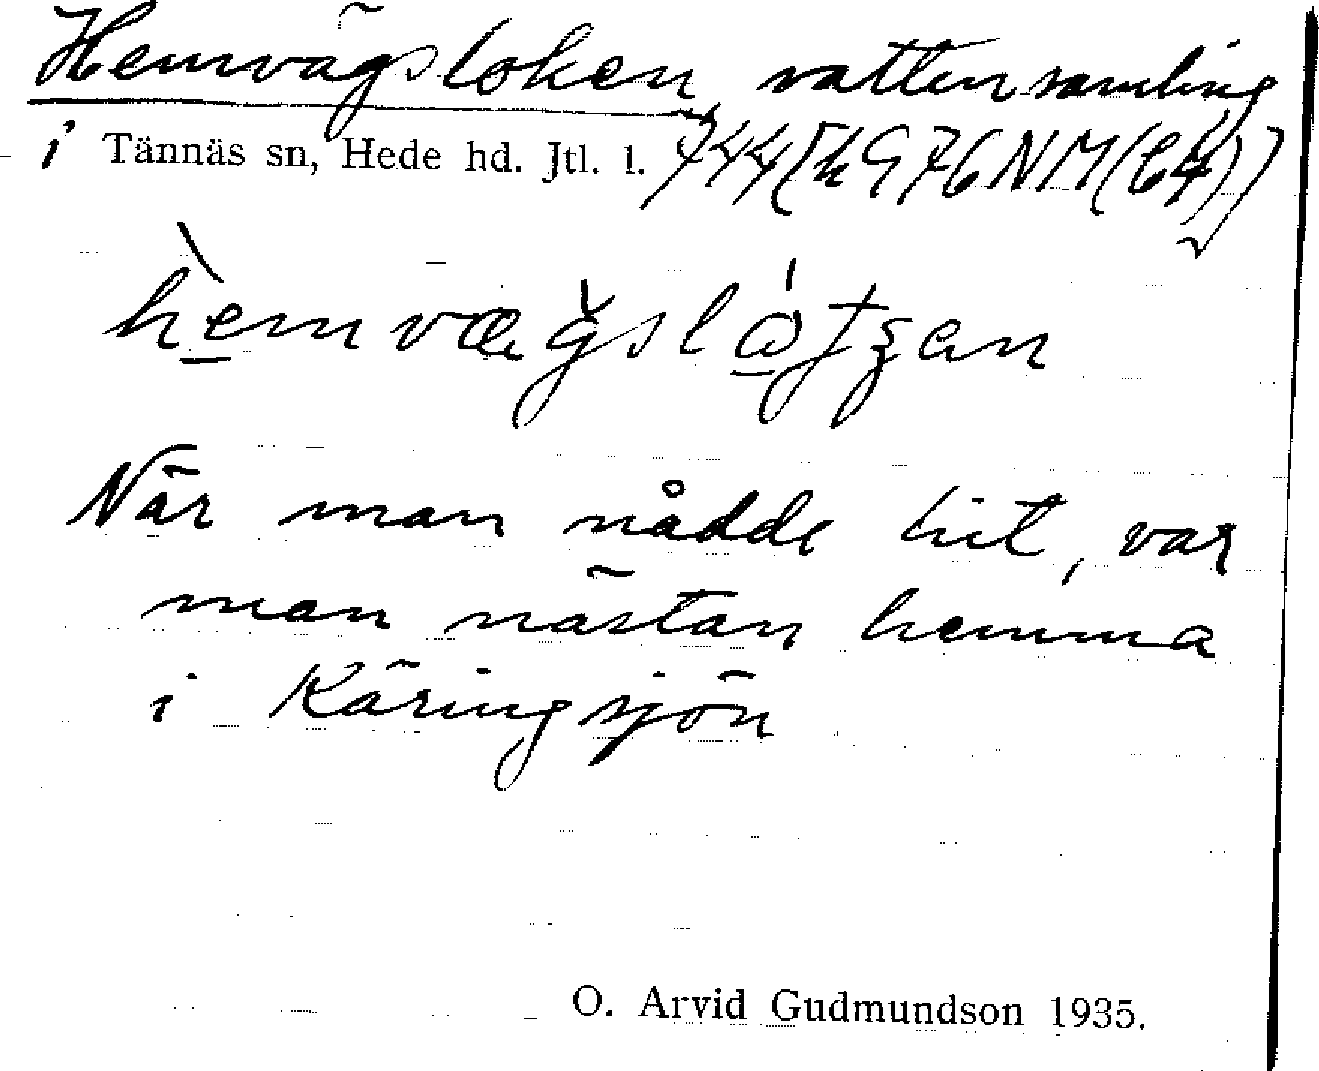 Hemvägsloken, vattensamling
i Tännäs sn, Hede hd. Jtl. l.
hemvægsl
När man nådde hit, var
man nästan hemma
i Käringsjön
O. Arvid Gudmundson 1935.